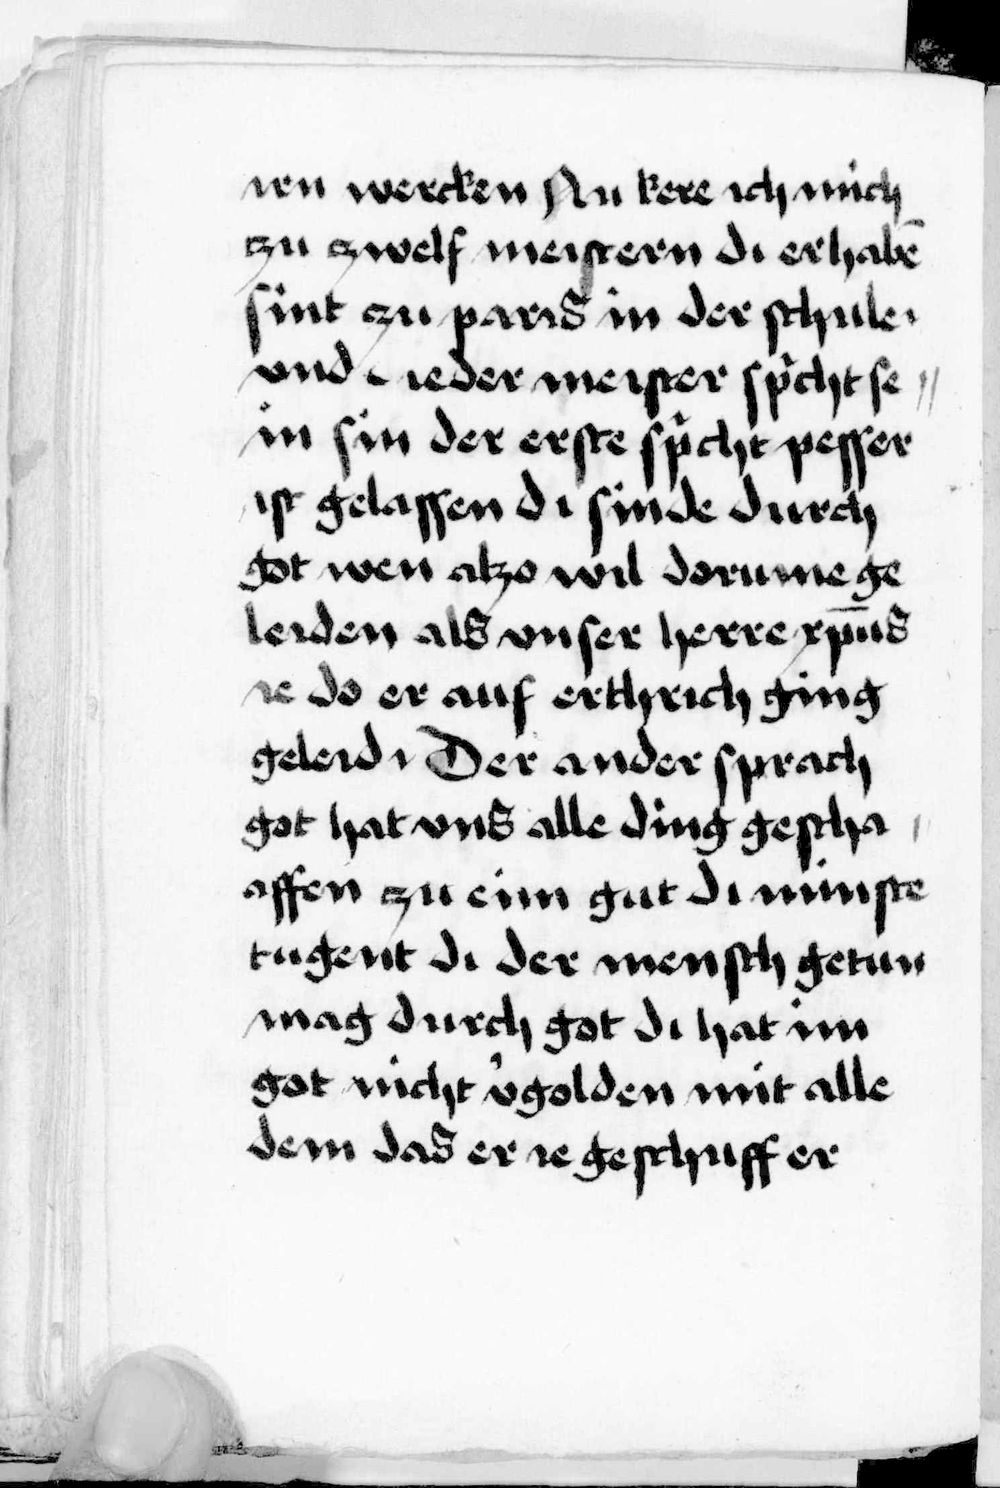 iren wercken Nu kere ich mich
zu zwelf meistern di erhabē
sint zu paris in der schule
vnd ieder meister sp̍cht se //
in sin der erste sp̍cht pesser
ist gelassen di sinde durch
got wen alzo wil dorume ge
leiden als vnser herre xp̄us
ie do er auf erthrich ging
geleid Der ander sprach
got hat vns alle ding gescha //
affen zu eim gut di minste
tugent di der mensch getun
mag durch got di hat im
got nicht v̍golden mit alle
dem das er ie geschuff er